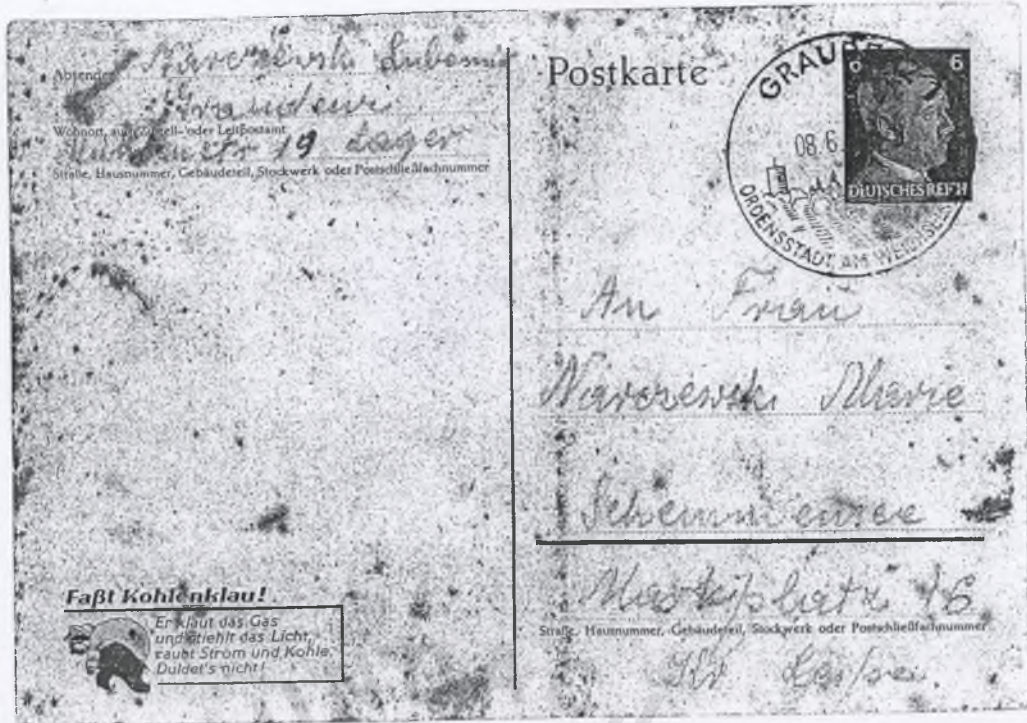 Absender: Narczewski
Graudenz
Wohnort, auch Zustell- oder Leitpostamt
19 Lager
Straße, Hausnummer, Gebäudeteil, Stockwerk oder Postschließfachnummer
Faßt Kohlenklau!
Er klaut das Gas
und stiehlt das Licht,
raubt Strom und Kohle.
Duldet's nicht!
Postkarte
GRAUDENZ
08.6
ORDENSSTADT AM WEICHSEL
6 6
DEUTSCHES REICH
An Frau
Narczewski Marie
Marktplatz 16
Straße, Hausnummer, Gebäudeteil, Stockwerk oder Postschließfachnummer